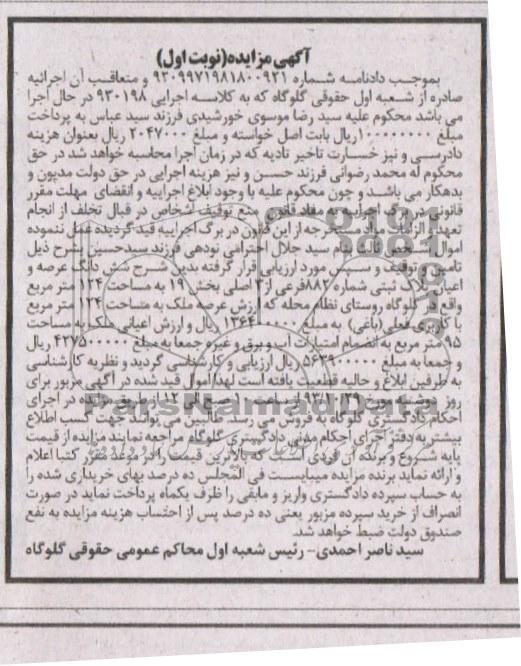 آگهی مزایده(نوبت اول)
بموجب دادنامه شماره ۹۳۰۹۹۷۱۹۸۱۸۰۰۹۲۱ و متعاقب آن اجرائیه
صادره از شعبه اول حقوقی گلوگاه که به کلاسه اجرایی ۹۳۰۱۹۸ در حال اجرا
می باشد محکوم علیه سید رضا موسوی خورشیدی فرزند سید عباس به پرداخت
مبلغ ۱۰۰۰۰۰۰۰۰ ریال بابت اصل خواسته و مبلغ ۲۰۴۷۰۰۰ ریال بعنوان هزینه
دادرسی و نیز خسارت تاخیر تادیه که در زمان اجرا محاسبه خواهد شد در حق
محکوم له محمد رضوانی فرزند حسن و نیز هزینه اجرایی در حق دولت مدیون و
بدهکار می باشد و چون محکوم علیه با وجود ابلاغ اجراییه و انقضای مهلت مقرر
قانونی مفاد قانون منع توقیف اشخاص در قبال تخلف از انجام
تعهدات مندرجه از این قانون در برگ اجراییه قید گردیده عمل ننموده
اموال شخص ثالث بنام سید جلال احترامی نودهی فرزند سیدحسین بشرح ذیل
تامین و توقیف و سپس مورد ارزیابی قرار گرفته بدین شرح شش دانگ عرصه و
اعیان پلاک ثبتی شماره ۸۸۲ فرعی از ۳ اصلی بخش ۱۹ به مساحت ۱۲۴ متر مربع
واقع در گلوگاه روستای نظام محله که ارزش عرصه ملک به مساحت ۱۲۴ متر مربع
با کاربری فعلی (باغی) به مبلغ ریال و ارزش اعیانی ملک به مساحت
۹۵ متر مربع به انضمام امتیازات آب و برق و غیره جمعا به مبلغ ۴۲۷۵۰۰۰۰۰ ریال
و جمعا به مبلغ ریال ارزیابی و کارشناسی گردید و نظریه کارشناسی
به طرفین ابلاغ و حالیه قطعیت یافته است لهذا اموال قید شده در آگهی مزبور برای
روز دوشنبه مورخ از ساعت ۱۰ صبح الی ۱۲ از طریق مزایده در اجرای
احکام دادگستری گلوگاه به فروش می رسد. طالبین می توانند جهت کسب اطلاع
بیشتر به دفتر اجرای احکام مدنی دادگستری گلوگاه مراجعه نمایند مزایده از قیمت
پایه شروع و برنده آن فردی است که بالاترین قیمت را در موعد مقرر کتبا اعلام
و ارائه نماید برنده مزایده میبایست فی المجلس ده درصد بهای خریداری شده را
به حساب سپرده دادگستری واریز و مابقی را ظرف یکماه پرداخت نماید در صورت
انصراف از خرید سپرده مزبور یعنی ده درصد پس از احتساب هزینه مزایده به نفع
صندوق دولت ضبط خواهد شد.
سید ناصر احمدی- رئیس شعبه اول محاکم عمومی حقوقی گلوگاه
ParsNamadData